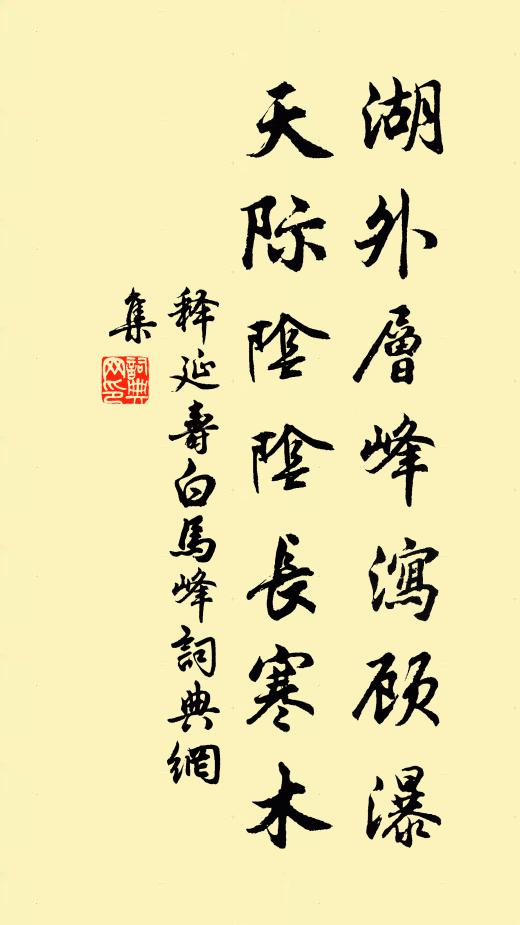 湖外層峰瀉顾瀑
天际陰陰長寒木
释延壽白馬峰詞典網
集
詞典
网印